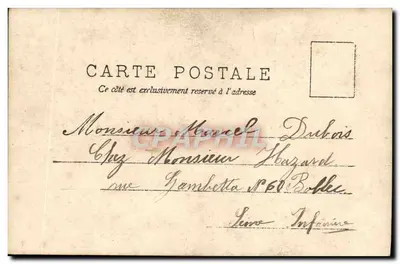 CARTE POSTALE
Ce côté est exclusivement réservé à l'adresse
Monsieur Marcel Dubois
Chez Monsieur Hazard
rue Gambetta N° 60 Bolbec
Seine Inférieure